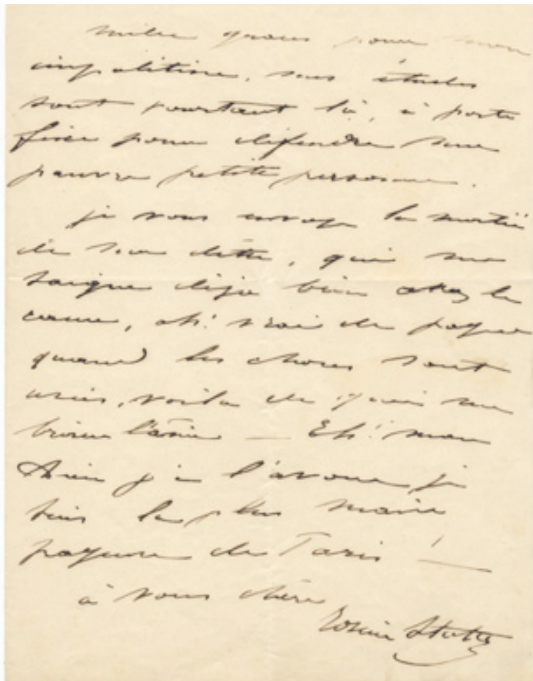 mille grâces pour mon
impolitesse, mes études
sont pourtant là, à poste
fixe pour défendre ma
pauvre petite personne.
je vous envoye la moitié
de ma dette, qui me
saigne déjà bien assez le
cœur, ah! vrai de payer
quand les choses sont
usées, voilà de quoi me
briser l'âme — Eh! mon
Dieu je l'avoue je
suis la plus
payeuse de Paris! —
à vous chère